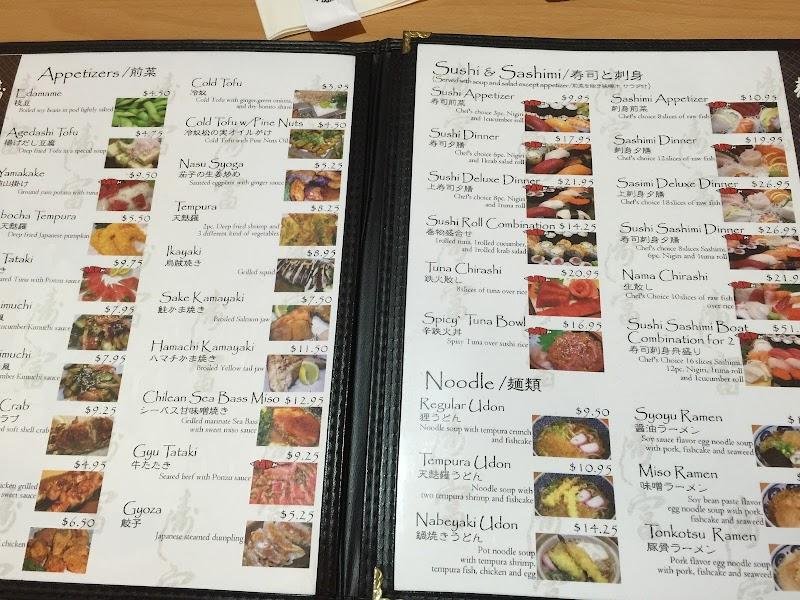 Appetizers/前菜
Edamame
枝豆
$4.50
Boiled soy beans in pod lightly salted
Agedashi Tofu
$4.75
揚げだし豆腐
Deep fried Tofu in a special soup
Yamakake
$9.50
山掛け
Ground yam potato with tuna
bocha Tempura
$5.50
天麩羅
Deep fried Japanese pumpkin
Tataki
$9.75
き
Seared Tuna with Ponzu sauce
imuchi
$7.95
cucumber Kimuchi sauce
imuchi
$7.95
cumber Kimuchi sauce
Crab
$9.25
ラブ
soft shell crab
$4.95
chicken grilled
sweet sauce
$6.50
chicken
Cold Tofu
$3.95
冷奴
Cold Tofu with ginger,green onions,
and dry bonito shave
Cold Tofu w/ Pine Nuts
$4.50
冷奴松の実オイルがけ
Cold Tofu with Pine Nuts Oil
Nasu Syoga
$5.25
茄子の生姜炒め
Sauteed eggplant with ginger sauce
Tempura
$8.25
天麩羅
2pc. Deep fried shrimp and
3 different kind of vegetables
Ikayaki
$8.95
烏賊焼き
Grilled squid
Sake Kamayaki
$7.50
鮭かま焼き
Broiled Salmon jaw
Hamachi Kamayaki
$11.50
ハマチかま焼き
Broiled Yellow tail jaw
Chilean Sea Bass Miso
$12.95
シーバス甘味噌焼き
Grilled marinate Sea Bass
with sweet miso sauce
Gyu Tataki
$9.25
牛たたき
Seared beef with Ponzu sauce
Gyoza
$5.25
餃子
Japanese steamed dumpling
Sushi & Sashimi/寿司と刺身
Sushi Appetizer
$9.95
寿司前菜
Chef's choice 4pc. Nigiri
and 1cucumber roll
Sushi Dinner
$17.95
寿司夕膳
Chef's choice 6pc. Nigiri
and 1krab salad roll
Sushi Deluxe Dinner
$21.95
上寿司夕膳
Chef's choice 8pc. Nigiri
and 1tuna roll
Sushi Roll Combination
$14.25
巻物盛合せ
1rolled tuna, 1rolled cucumber,
and 1rolled krab salad
Tuna Chirashi
$20.95
鉄火散し
8 slices of tuna over rice
Spicy Tuna Bowl
$16.95
辛鉄火丼
Spisy Tuna over sushi rice
Sashimi Appetizer
$10.95
刺身前菜
Chef's choice 8 slices of raw fish
Sashimi Dinner
$19.95
刺身夕膳
Chef's choice 12 slices of raw fish
Sasimi Deluxe Dinner
$26.95
上刺身夕膳
Chef's choice 18 slices of raw fish
Sushi Sashimi Dinner
$26.95
寿司刺身夕膳
Chef's choice 8 slices Sashimi,
6pc. Nigiri and 1tuna roll
Nama Chirashi
$21.9
生散し
Chef's Choice 10 slices of raw fish
over rice
Sushi Sashimi Boat
Combination for 2
$51.
寿司刺身舟盛り
Chef's Choice 16 slices Sashimi,
12pc. Nigiri, 1tuna roll
and 1cucumber roll
Noodle/麺類
Regular Udon
$9.50
狸うどん
Noodle soup with tempura crunch
and fishcake
Tempura Udon
$10.95
天麩羅うどん
Noodle soup with
two tempura shrimp and fishcake
Nabeyaki Udon
$14.25
鍋焼きうどん
Pot noodle soup
with tempura shrimp,
tempura fish, chicken and egg
Syoyu Ramen
醤油ラーメン
Soy sauce flavor egg noodle soup
with pork, fishcake and seaweed
Miso Ramen
味噌ラーメン
Soy bean paste flavor
egg noodle soup with pork,
fishcake and seaweed
Tonkotsu Ramen
豚骨ラーメン
Pork flavor egg noodle soup
with pork, fishcake and seaweed